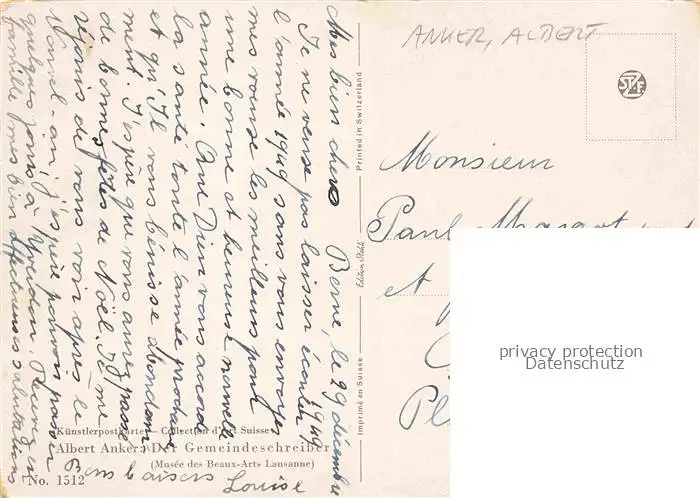 ANKER, ALBERT
Berne, le 29 décembre
1949
Mes bien chers
Je ne veux pas laisser écouler
l'année 1949 sans vous envoyer
mes voeux les meilleurs pour
une bonne et heureuse nouvelle
année. Que Dieu vous accorde
la santé toute l'année prochaine
et qu'Il vous bénisse abondam
ment. J'espère que vous aurez passé
de bonnes fêtes de Noël. Je me
réjouis de vous voir après le
Nouvel-an; j'espère pouvoir passer
quelques jours à Yverdon. Recevez en
famille mes bien affectueuses salutations
Bons baisers
Louise
Künstlerpostkarte - Collection d'Art Suisse
Albert Anker: Der Gemeindeschreiber
(Musée des Beaux-Arts Lausanne)
No. 1512
Imprimé en Suisse
Edition Stehli
Printed in Switzerland
Monsieur
Paul Margot
et
privacy protection
Datenschutz